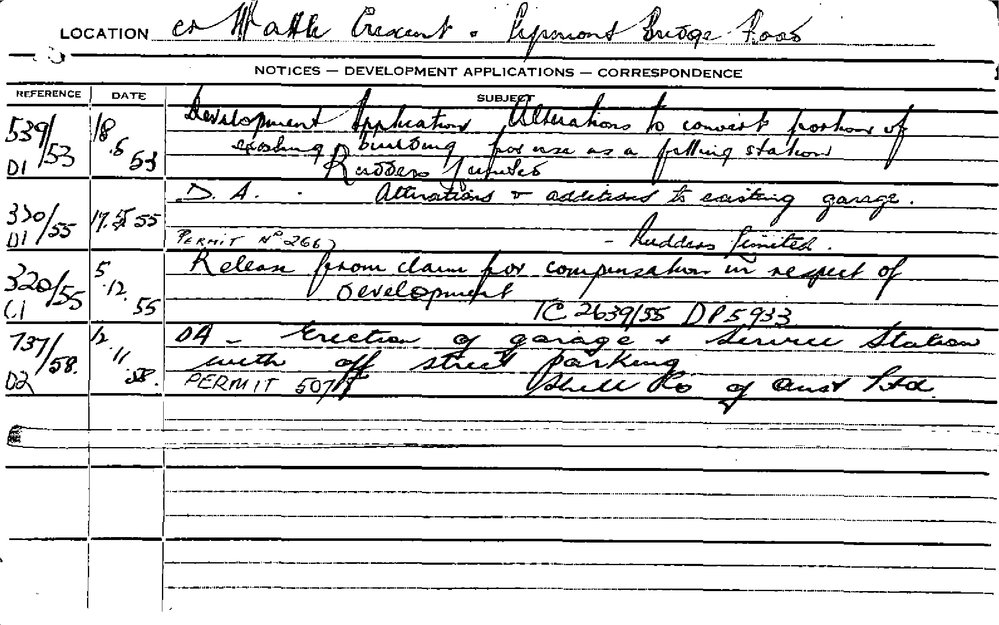 LOCATION cr Wattle Crescent & Pyrmont Bridge Road
NOTICES — DEVELOPMENT APPLICATIONS — CORRESPONDENCE
REFERENCE DATE SUBJECT
539/53 D1 18.5.53 Development Application Alterations to convert portion of
existing building for use as a filling station
Rudders Limited
330/55 D1 17.5.55 D.A. Alterations & additions to existing garage.
PERMIT Nº 2667 - Rudders Limited.
320/55 C1 5.12.55 Release from claim for compensation in respect of
development
TC 2639/55 DP5933
737/58. D2 12.11.58. DA - Erection of garage & Service Station
with off street parking
PERMIT Shell Co of Aust Ltd.